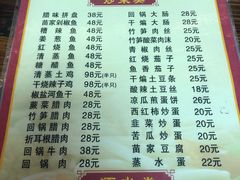 炒菜类
腊味拼盘 38元
苗家剁椒鱼 48元
糟辣鱼 48元
姜葱鱼 48元
红烧鱼 48元
清蒸鱼 48元
糖醋鱼 48元
清蒸土鸡 98元(半只)
干烧辣子鸡 98元(半只)
椒盐河鱼干 48元
蕨菜腊肉 28元
竹笋腊肉 28元
回锅腊肉 28元
折耳根腊肉 28元
回锅牛肉 38元
回锅肉 28元
回锅大肠 28元
干煸大肠 28元
竹笋肉丝 25元
竹笋酸菜肉沫 20元
青椒肉丝 25元
红烧茄子 25元
鱼香茄子 25元
干煸土豆条 25元
酸辣土豆丝 18元
凉瓜煎蛋饼 26元
西红柿炒蛋 20元
韭菜炒蛋 20元
苦瓜炒蛋 20元
苗家豆腐 20元
蒸水蛋 22元